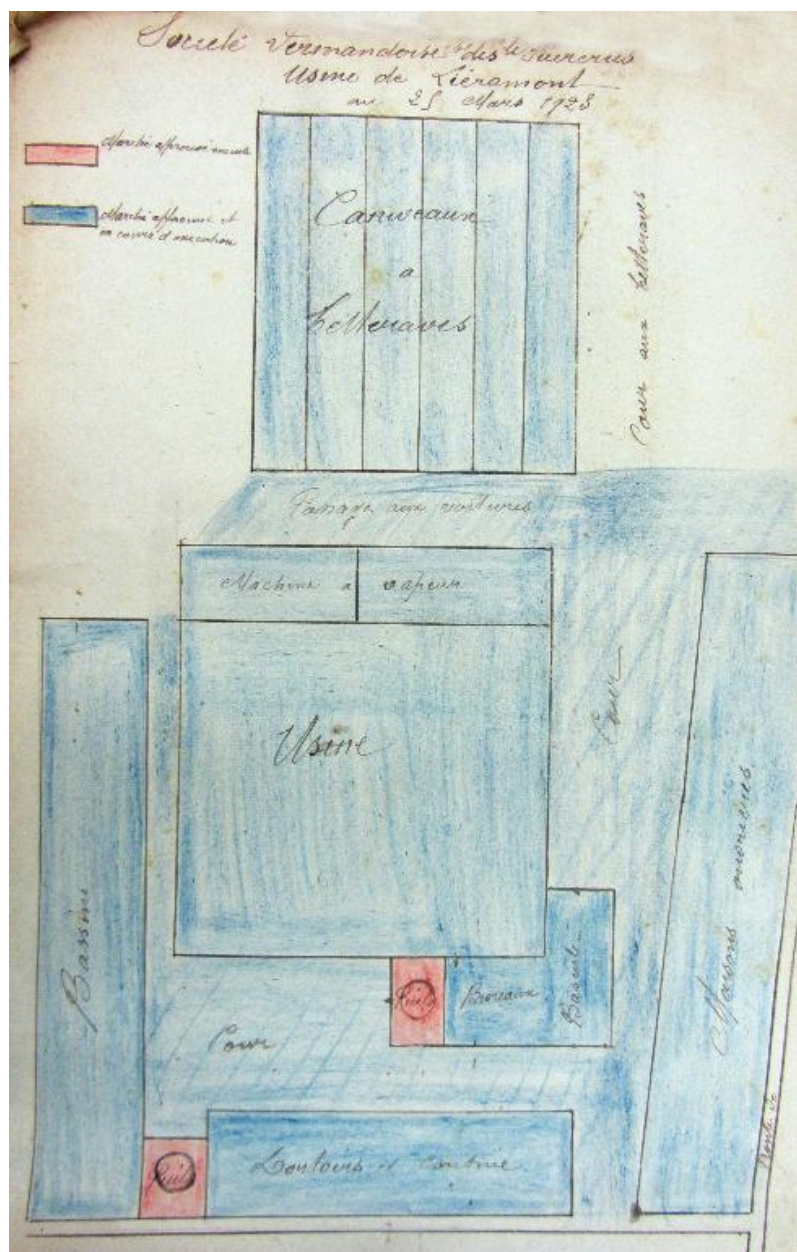 Société Vermandoise des Sucreries
Usine de Liéramont
au 25 Mars 1923
Marché approuvé exécuté
Marché approuvé et
en cours d'exécution
Caniveaux
a
betteraves
Cour aux betteraves
Passage aux voitures
Machine a vapeur
Usine
Cour
Maisons ouvrières
Bassins
Puits
Bureaux
Bascule
Cour
Puits
et
Route de